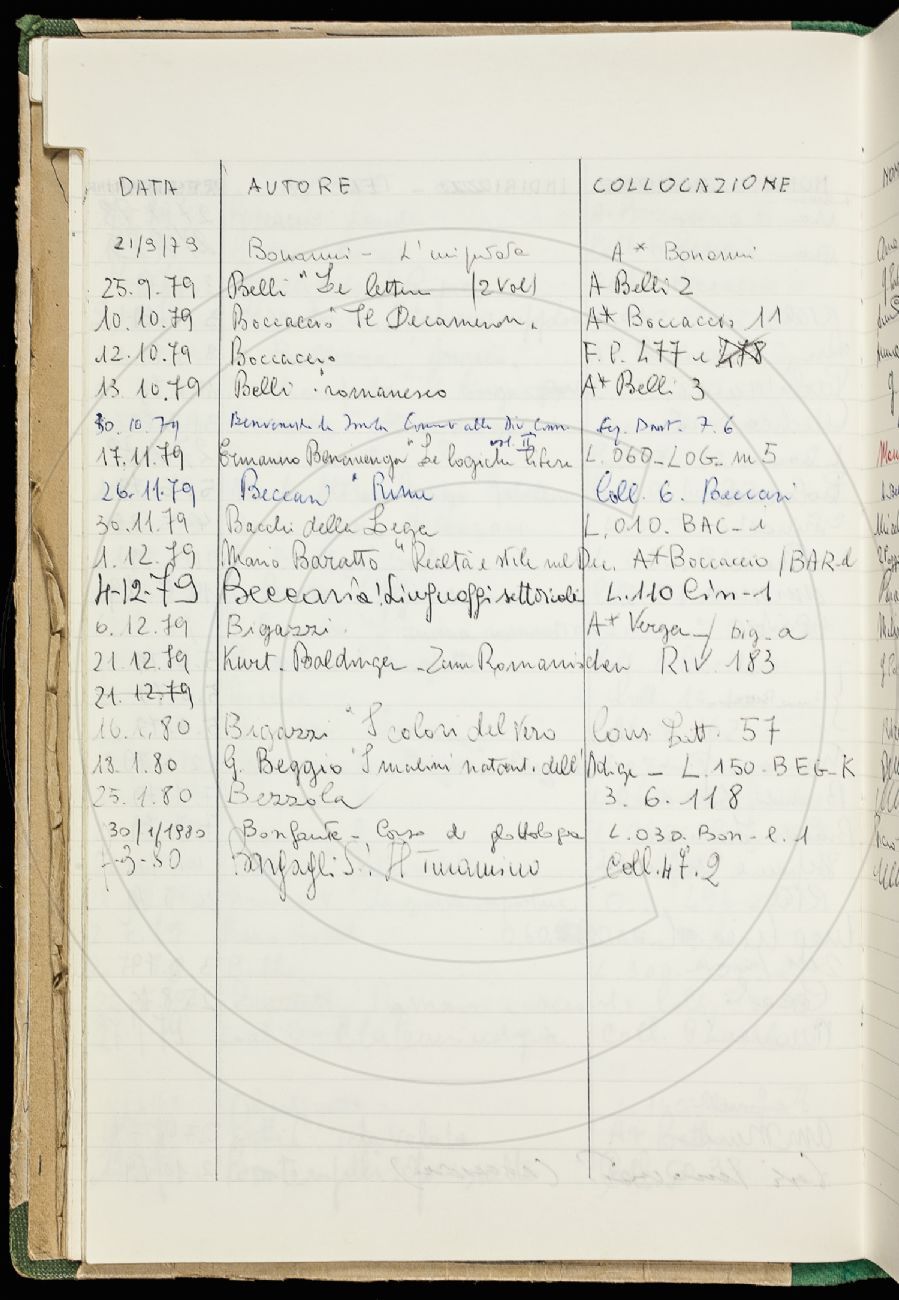 DATA AUTORE COLLOCAZIONE
21/9/79 Bonanni - L' A* Bonanni
25.9.79 Belli " Le lettere (2 vol) A Belli 2
10.10.79 Boccaccio "Il Decameron. A* Boccaccio 11
12.10.79 Boccaccio F.P. 477 e 478
13.10.79 Belli "romanesco A* Belli 3
30.10.79 Benvenuto da Imola Comm alla Div. Com. 7.6
vol. II
17.11.79 Ermanno Bencivenga "Le logiche libere L.060-LOG-m5
26.11.79 Beccari " Rime Coll. 6. Beccari
30.11.79 Bacchi della Lega L.010.BAC-1
1.12.79 Mario Baratto "Realtà e stile nel Dec. A* Boccaccio /BAR-d
4-12-79 Beccaria: Linguaggi settoriali L.110 Lin-1
6.12.79 Bigazzi. A* Verga-/big-a
21.12.79 Kurt. Baldinger - Zum Romanischen RIV. 183
21.12.79
16.1.80 Bigazzi "I colori del Vero Cons. Lett. 57
18.1.80 G. Beggio "I mulini natanti dell' Adige - L.150.BEG-K
25.1.80 Bezzola 3.6.118
30/1/1980 Bonfante - Corso di glottologia L.030.Bon-e.1
7-3-80 Coll.47.2